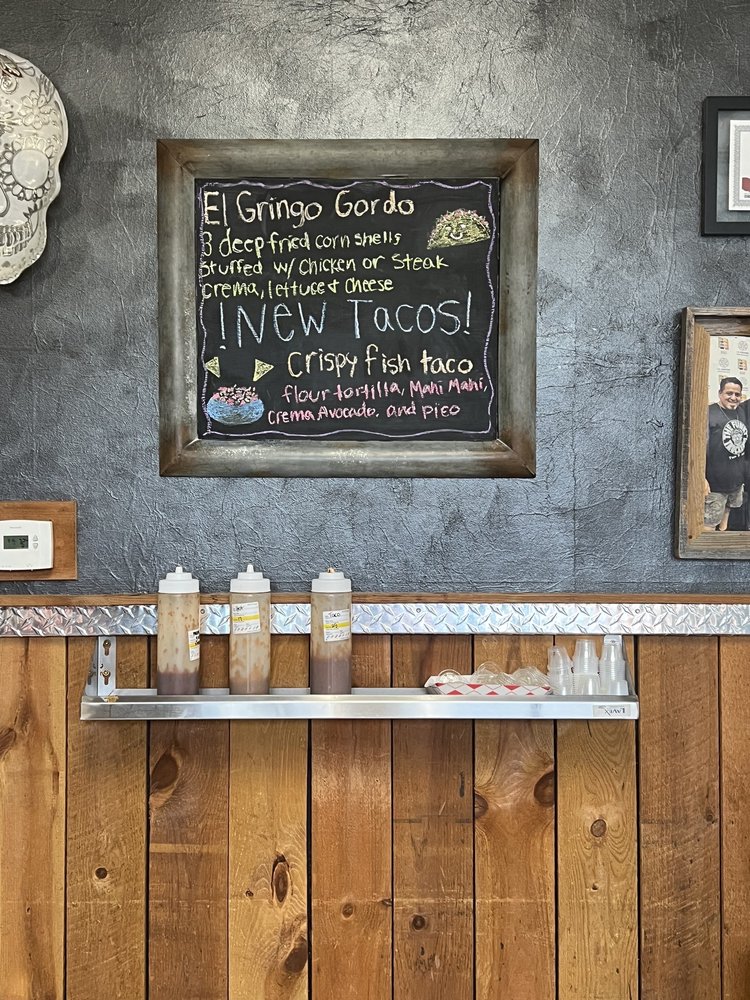 El Gringo Gordo
3 deep fried corn shells
stuffed w/ chicken or steak
crema, lettuce & cheese
¡New Tacos!
Crispy fish taco
flour tortilla, Mahi Mahi,
crema, Avocado, and pico